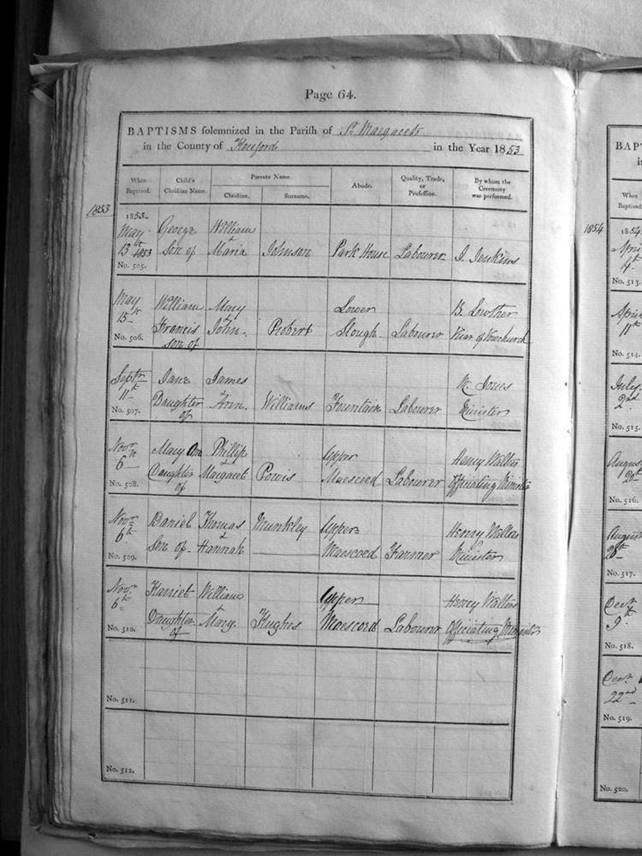 Page 64.
BAPTISMS solemnized in the Parish of St. Margarets
in the County of Hereford in the Year 1853
When Baptized. Child's Christian Name. Parents Name. Abode. Quality, Trade, or Profession. By whom the Ceremony was performed.
Christian. Surname.
1853
1853.
May George William
13th 1853 Son of & Maria Johnson Park House Labourer J. Jenkins
No. 505.
May William Mary Lower B. Lowther
15th Francis & John. Probert Slough Labourer Vicar of Vowchurch
No. 506. Son of
Septr Jane James W. Jones
11th Daughter & Ann. Williams Fountain Labourer Minister
No. 507. of
Novr Mary Ann Phillip Upper Henry Walters
6th Daughter & Margaret Powis Maescoed Labourer Officiating Minister
No. 508. of
Novr Daniel Thomas Munkley Upper Henry Walters
6th Son of & Hannah Maescoed Farmer Minister
No. 509.
Novr Harriet William Upper Henry Walters
6th Daughter & Mary. Hughes Maescord Labourer Officiating Minister
No. 510. of
No. 511.
No. 512.
BAP
When
Baptized.
1854
1854
April
4th
No. 513.
April
11th
No. 514.
July
2nd
No. 515.
August
No. 516.
August
No. 517.
Decr
9th
No. 518.
Decr
22nd
No. 519.
No. 520.